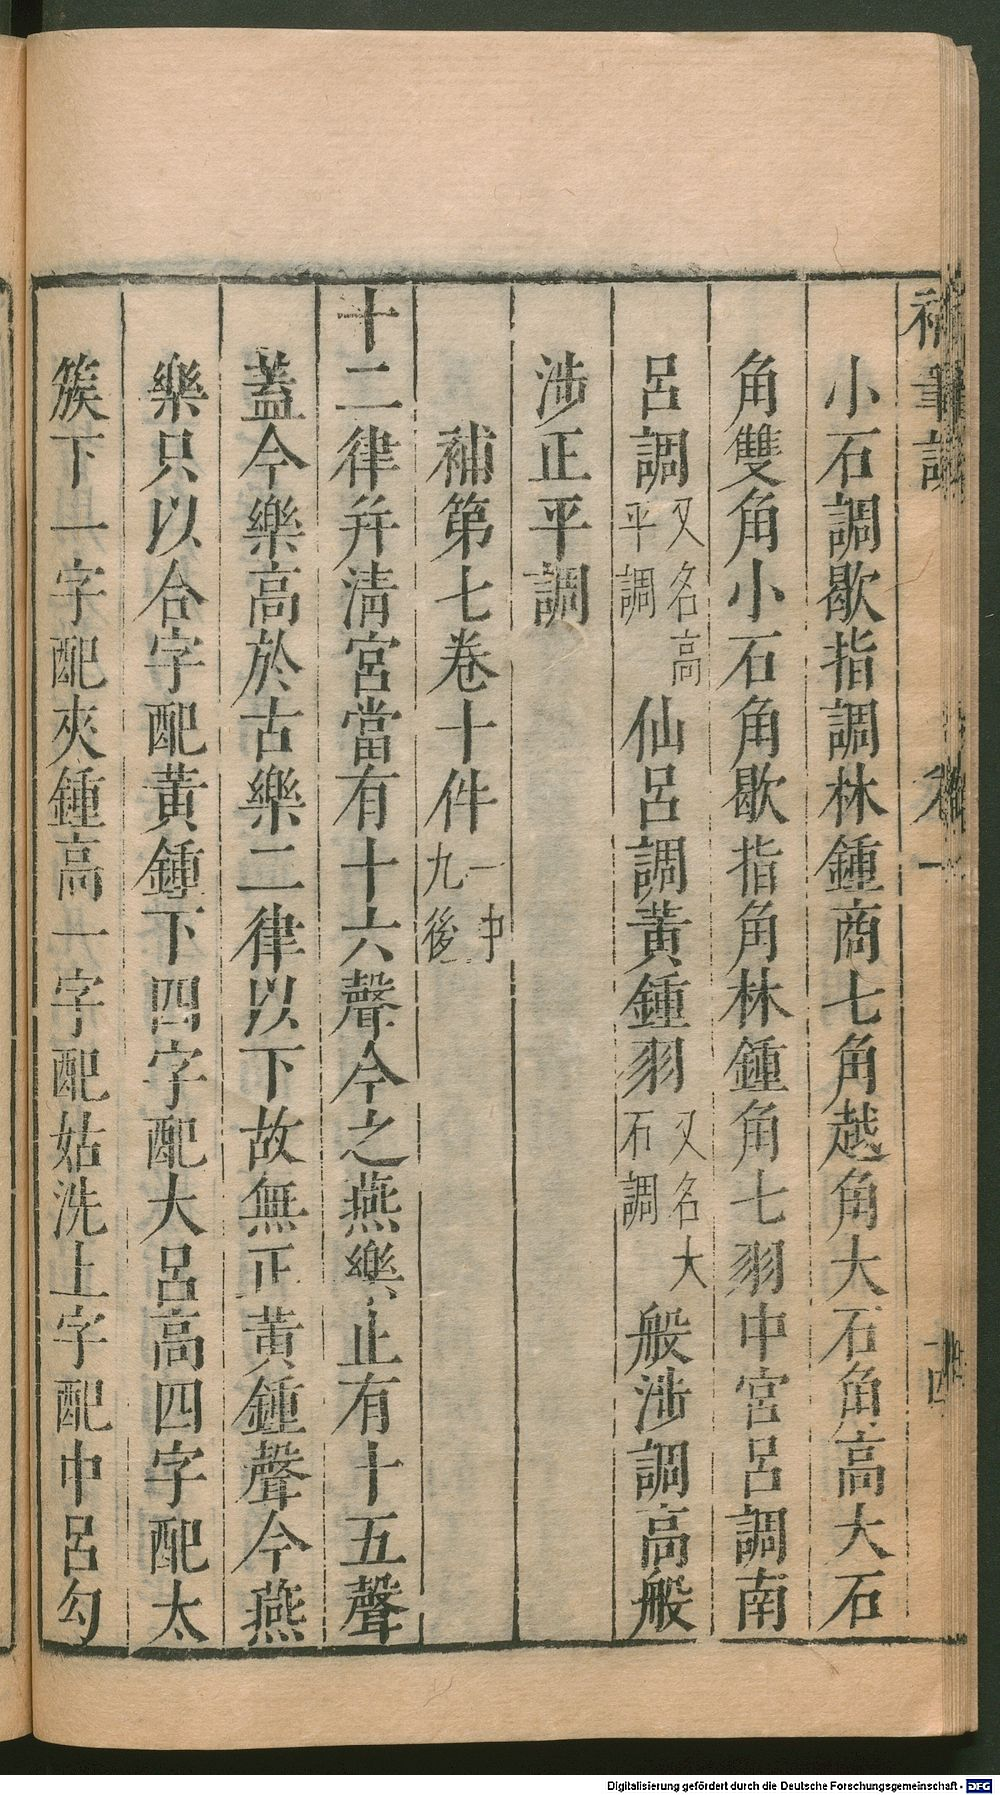 小石調歇指調林鍾商七角越角大石角高大石
角雙角小石角歇指角林鍾角七羽中宮呂調南
呂調又名高平調仙呂調黃鍾羽又名大石調般涉調高般
涉正平調
補第七卷十件一中九後
十二律并清宮當有十六聲今之燕樂止有十五聲
蓋今樂高於古樂二律以下故無正黃鍾聲今燕
樂只以合字配黃鍾下四字配大呂高四字配太
簇下一字配夾鍾高一字配姑洗上字配中呂勾
Digitalisierung gefördert durch die Deutsche Forschungsgemeinschaft - DFG